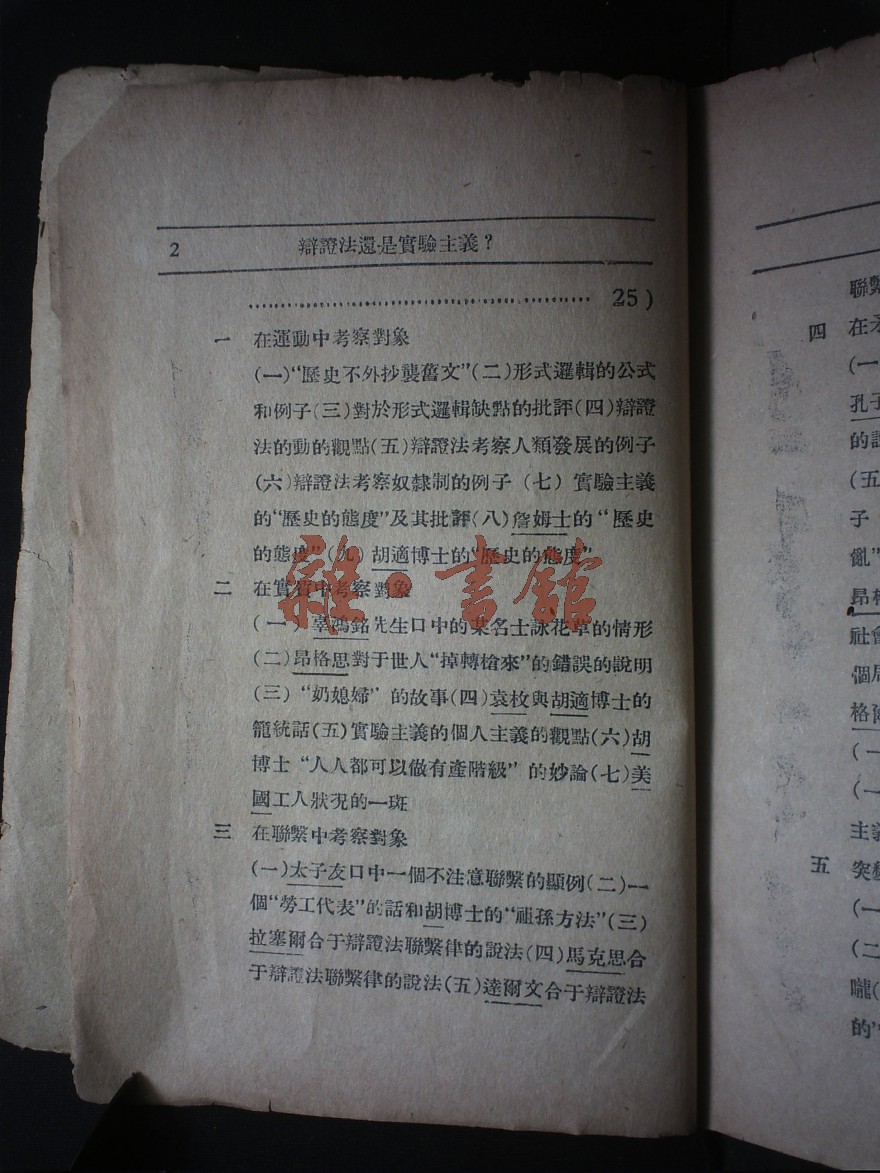 2 辯證法還是實驗主義？
25)
一 在運動中考察對象
(一)“歷史不外抄襲舊文”(二)形式邏輯的公式
和例子(三)對於形式邏輯缺點的批評(四)辯證
法的動的觀點(五)辯證法考察人類發展的例子
(六)辯證法考察奴隸制的例子(七)實驗主義
的“歷史的態度”及其批評(八)詹姆士的“歷史
的態度”(九)胡適博士的“歷史的態度”
二 在實質中考察對象
(一)辜鴻銘先生口中的某名士詠花草的情形
(二)昂格思對于世人“掉轉槍來”的錯誤的說明
(三)“奶媳婦”的故事(四)袁枚與胡適博士的
籠統話(五)實驗主義的個人主義的觀點(六)胡
博士“人人都可以做有產階級”的妙論(七)美
國工人狀況的一斑
三 在聯繫中考察對象
(一)太子友口中一個不注意聯繫的顯例(二)一
個“勞工代表”的話和胡博士的“祖孫方法”(三)
拉塞爾合于辯證法聯繫律的說法(四)馬克思合
于辯證法聯繫律的說法(五)達爾文合于辯證法
雜·書館
聯繫
四 在矛
(一
孔子
的
(五
子
亂”
昂格
社會
個
格
(一
(一
主義
五 突
(一
(二
嚨(
的“